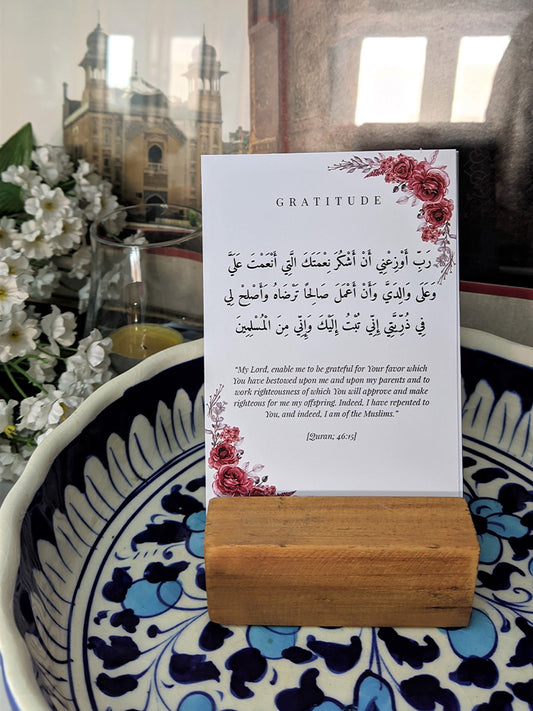 GRATITUDE
رَبِّ أَوْزِعْنِي أَنْ أَشْكُرَ نِعْمَتَكَ الَّتِي أَنْعَمْتَ عَلَيَّ
وَعَلَى وَالِدَيَّ وَأَنْ أَعْمَلَ صَالِحًا تَرْضَاهُ وَأَصْلِحْ لِي
فِي ذُرِّيَّتِي إِنِّي تُبْتُ إِلَيْكَ وَإِنِّي مِنَ الْمُسْلِمِينَ
“My Lord, enable me to be grateful for Your favor which
You have bestowed upon me and upon my parents and to
work righteousness of which You will approve and make
righteous for me my offspring. Indeed, I have repented to
You, and indeed, I am of the Muslims.”
[Quran; 46:15]